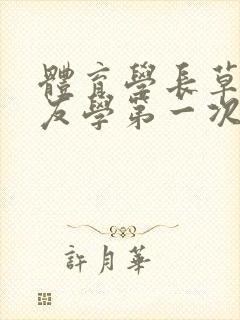 體育學長草
友學第一次
許月華